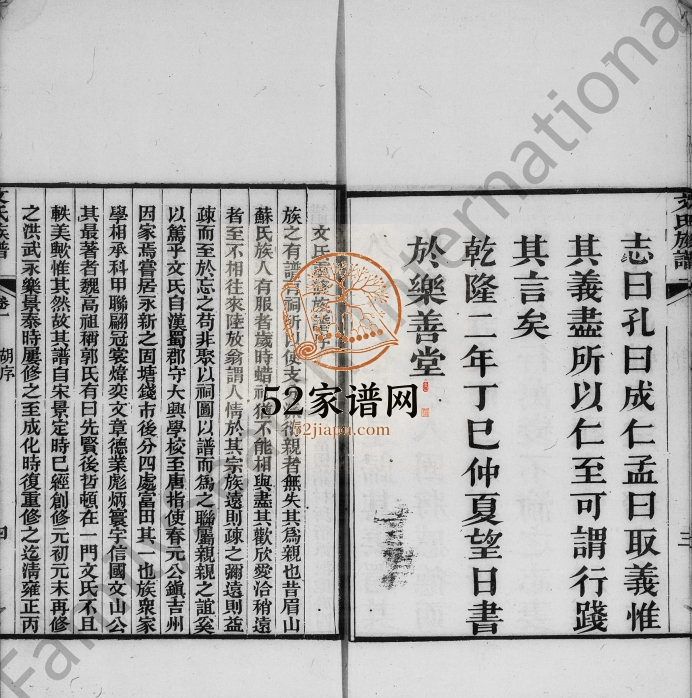 文氏族譜
三
志曰孔曰成仁孟曰取義惟
其義盡所以仁至可謂行踐
其言矣
乾隆二年丁巳仲夏望日書
於樂善堂
文氏
族之有譜 祠所 使支 親者無失其為親也昔眉山
蘇氏族人有服者歲時蜡 不能相與盡其歡欣愛洽稍遠
者至不相往來陸放翁謂人情於其宗族遠則疎之彌遠則益
疎而至於忘之苟非聚以祠圖以譜而為之聯屬親親之誼奚
以篤乎文氏自漢蜀郡守大興學校至唐指使春元公鎮吉州
因家焉嘗居永新之固塘錢市後分四處富田其一也族衆家
學相承科甲聯翩冠裳煒奕文章德業彪炳寰宇信國文山公
其最著者魏高祖稱郭氏有曰先賢後哲頓在一門文氏不且
軼美歟惟其然故其譜自宋景定時已經創修元初元末再修
之洪武永樂景泰時屢修之至成化時復重修之迄清雍正丙
文氏族譜
卷一
胡序
四
52家谱网
52jiapu.com
FamilySearch International